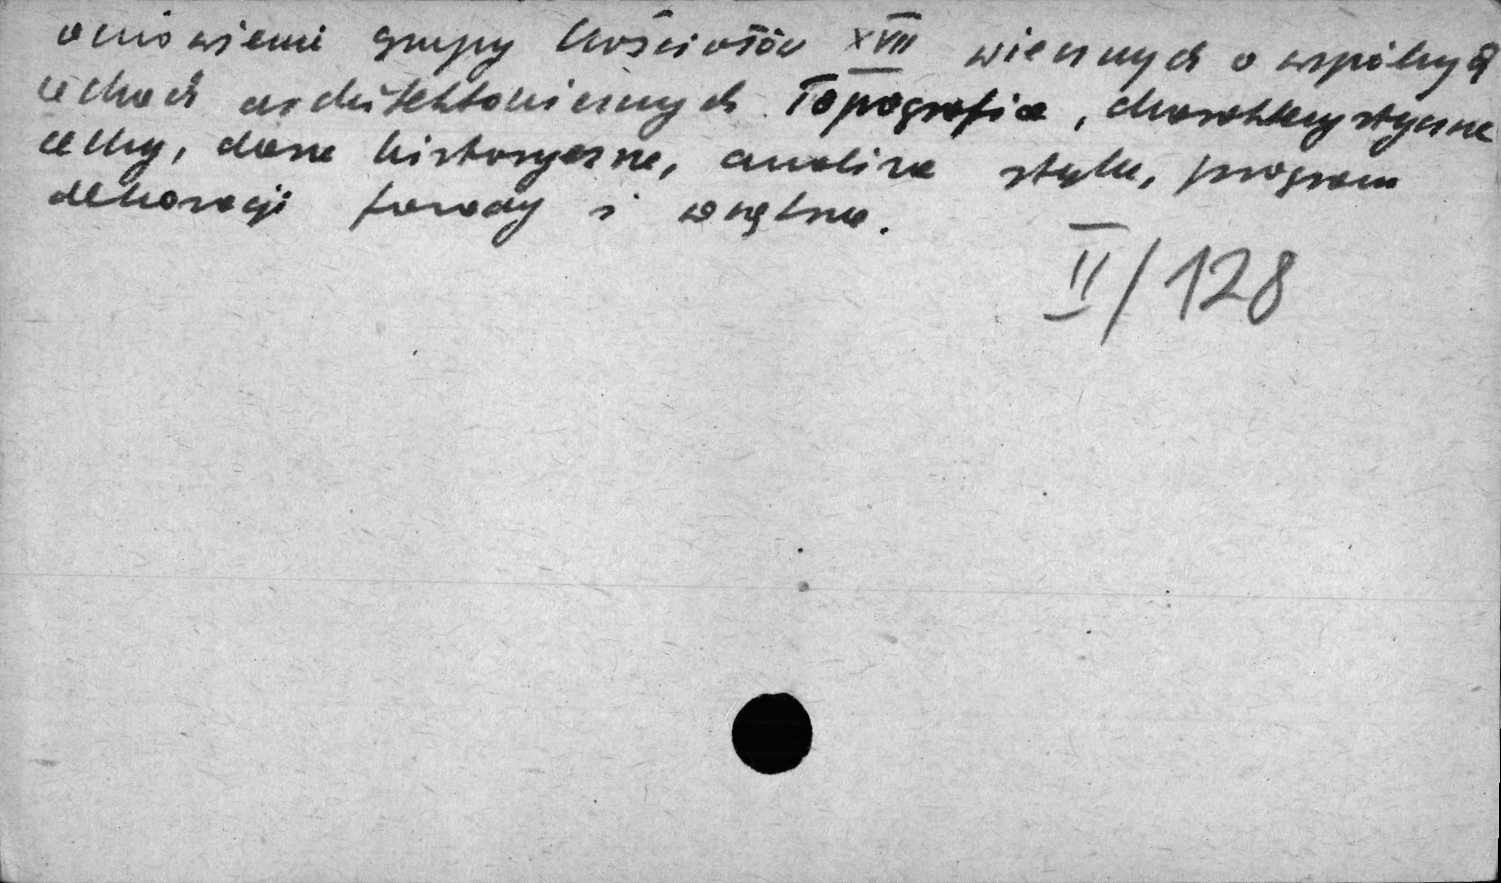 omówienie grupy kościołów XVII wiecznych o wspólnych
cechach architektonicznych. Topografia, charakterystyczne
cechy, dane historyczne, analiza stylu, program
dekoracji fasady i wnętrza.
II/128